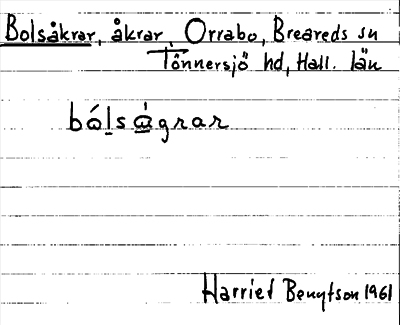 Bolsåkrar, åkrar, Orrabo, Breareds sn
Tönnersjö hd, Hall. län
bɷ́lsɷ̀grar
Harriet Bengtson 1961